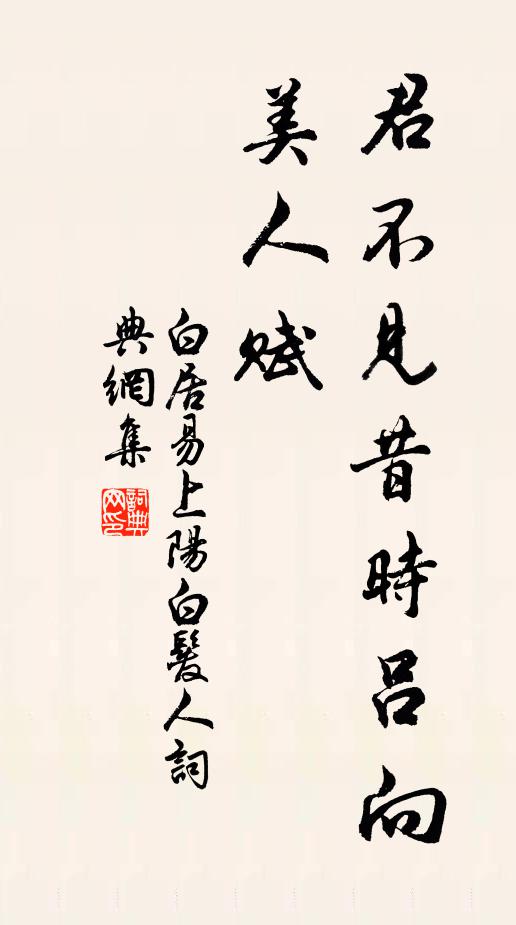 君不見昔時呂向
美人賦
白居易上陽白髮人詞
典網集
詞典网印